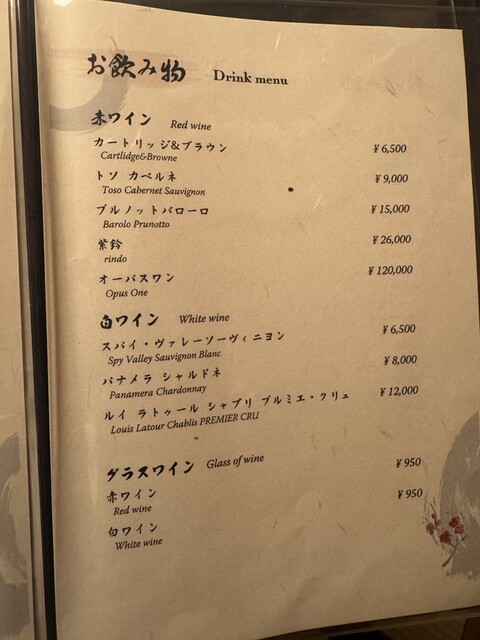 お飲み物 Drink menu
赤ワイン Red wine
カートリッジ&ブラウン ¥6,500
Cartlidge&Browne
トソ カベルネ ¥9,000
Toso Cabernet Sauvignon
ブルノットバローロ ¥15,000
Barolo Prunotto
紫鈴 ¥26,000
rindo
オーパスワン ¥120,000
Opus One
白ワイン White wine
スパイ・ヴァレーソーヴィニヨン ¥6,500
Spy Valley Sauvignon Blanc
パナメラ シャルドネ ¥8,000
Panamera Chardonnay
ルイ ラトゥール シャブリ プルミエ・クリュ ¥12,000
Louis Latour Chablis PREMIER CRU
グラスワイン Glass of wine
赤ワイン ¥950
Red wine
白ワイン ¥950
White wine